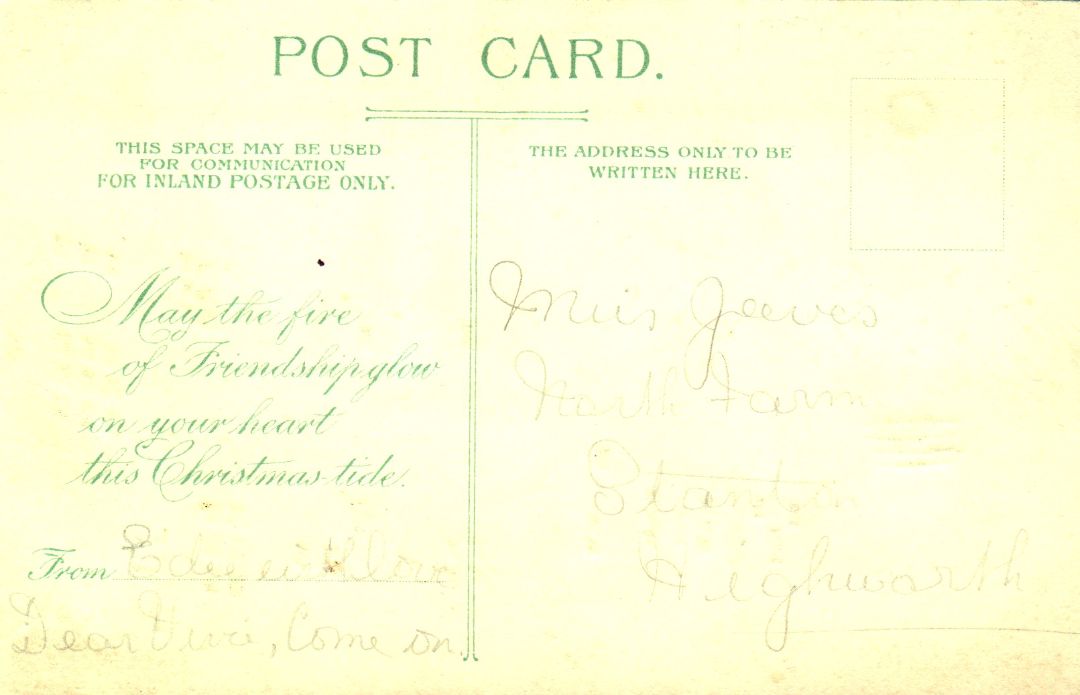 POST CARD.
THIS SPACE MAY BE USED
FOR COMMUNICATION
FOR INLAND POSTAGE ONLY.
May the fire
of Friendship glow
on your heart
this Christmas-tide.
From Edie with love
Dear Vivie, Come on.
THE ADDRESS ONLY TO BE
WRITTEN HERE.
Miss Jeeves
North Farm
Stanton
Highworth